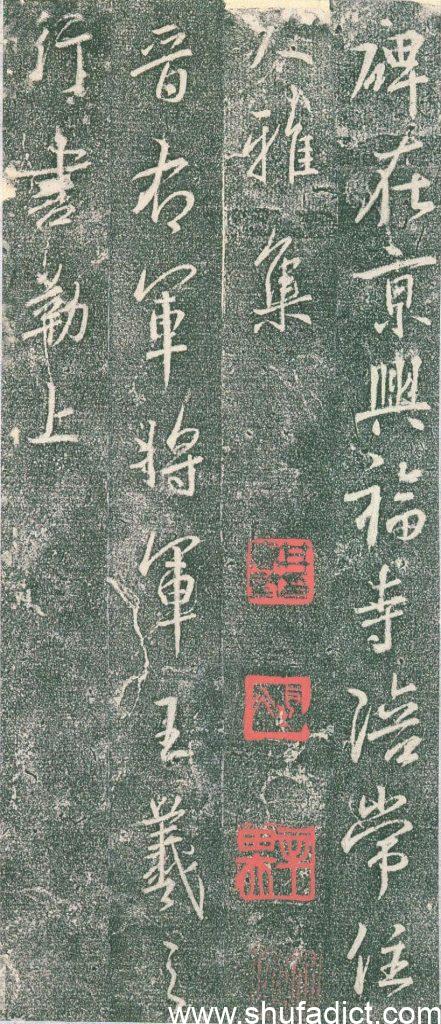 碑在京興福寺陪常住
大雅集
晋右軍將軍王羲之
行書勒上
www.shufadict.com